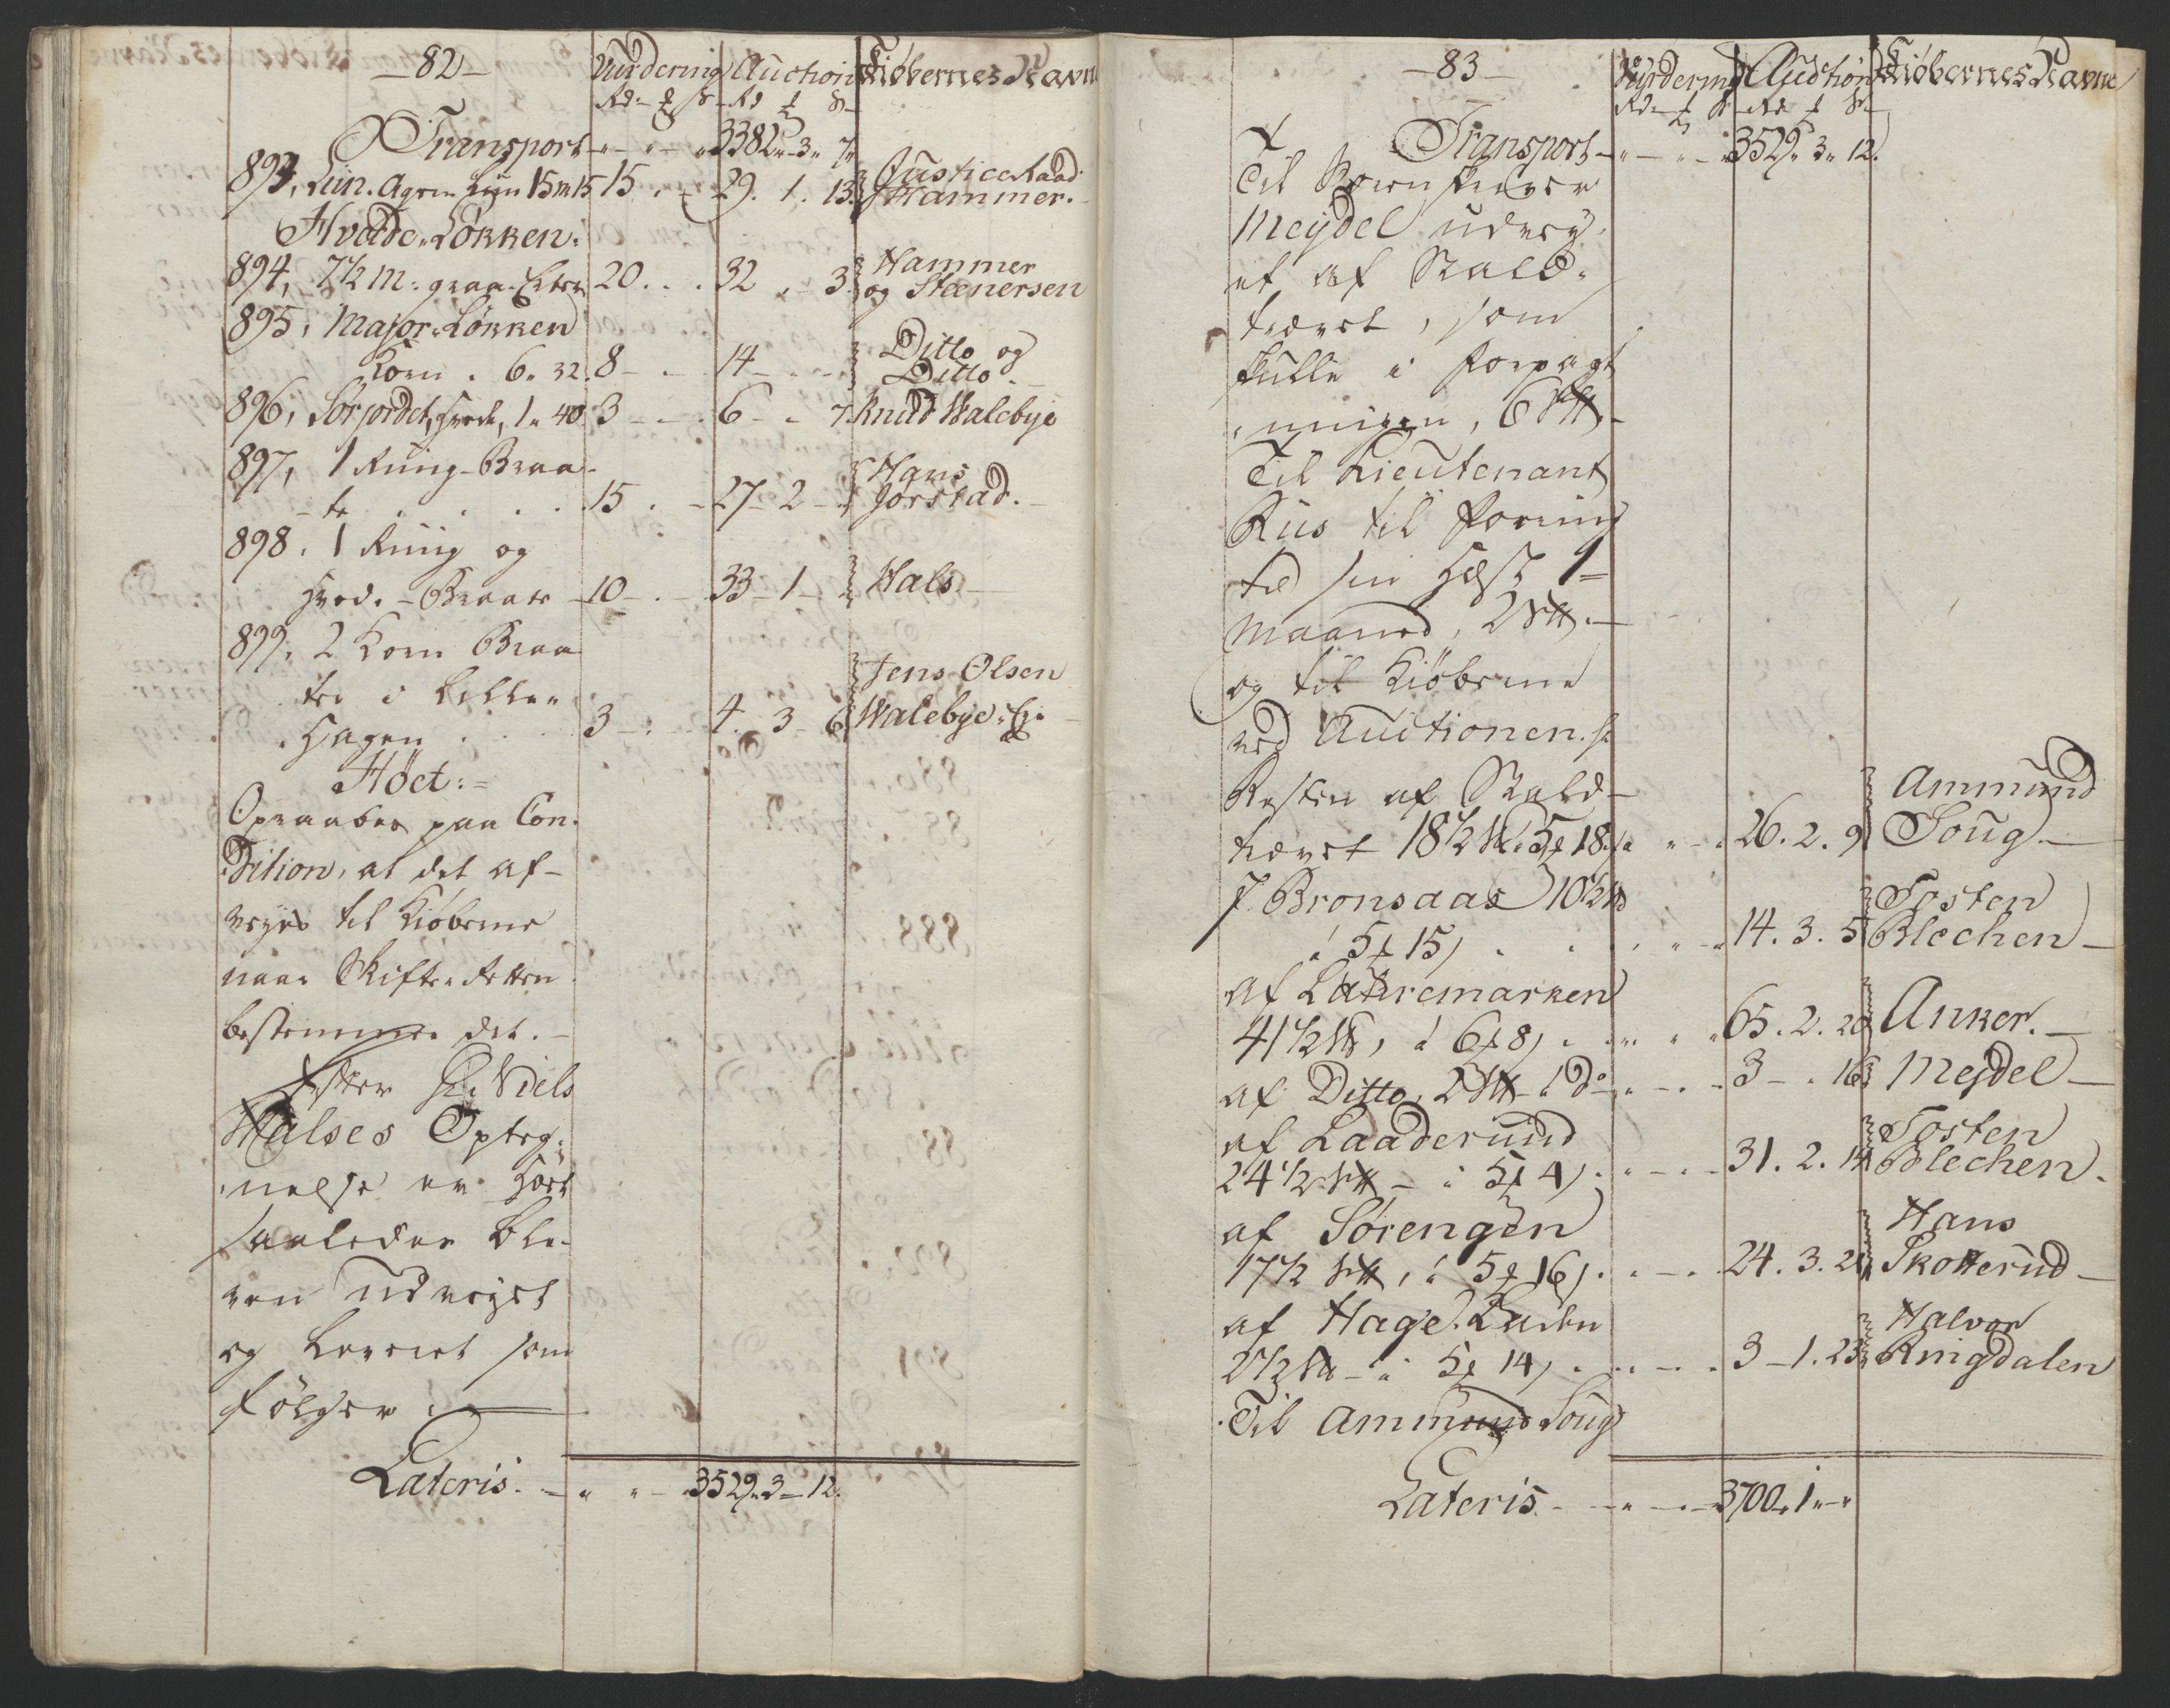 -82-
Vurdering Auction Kiøbernes Navne
Rd. Rd
Transport 3382 „ 3 „ 7
893, Liin. Agren 15 m 15 15 . 29. 1. 13. Justice Raad
Hammer.
Hvede-Løkken.
894, 7½ M: graa Erter 20 . . 32 „ 3. Hammer
og Steenersen
895, Major-Løkken
Korn . 6 „ 32. 8 - . 14 - . - Ditto og
Ditto.
896, Sørjordet, Hvede, 1 „ 40. 3 - . 6 - „ 7. Knud Walebye
897, 1 Ruug-Braa-
te . . . . 15 . - 27 - 2 - Hans
Jørstad.
898. 1 Ruug og
Hved.-Braate - 10 - . - 33 - 1 - Hals
899. 2 Korn Braa
ter i Lille-
Hagen . . . 3 - . - 4. 3 - 6 Jens Olsen
Walebye-Eje
Høet:=
Opraabes paa Con-
dition, at det af-
vejes til Kiøberne
naar Skifte-Retten
bestemmer det. -
Efter Sr. Niels
Halses Opteg-
nelse er Høet
saaledes ble-
ven udvejet
og leveret som
følger :
Lateris. - „ „ - 3529 „ 3 - 12.
-83-
Vurdering Auction Kiøbernes Navne
Rd Rd
Transport - „ - „ - 3529 „ 3 „ 12.
Til
Meydel udvej-
et af Stald-
tædret, som
fulte i Forpagt
ningen, 6
Til Lieutenant
Rus til Foring
til sin Hest 1
Maaned, 2
og til Kiøberne
ved Auctionen.
Resten af Stald-
tædret 18½ 5 18 „ - 26. 2. 9 Ammund
Soug
I Bronsaas 10½
á 5 15 . . . 14. 3. 5 Tosten
Blechen
Af Ladremarken
41½ , á 6 8 . . . 65. 2. 20 Anker.
af Ditto, 2 á do - . - 3 - . 16 Mejdel
af Laaderuud
24½ - á 5 4 . - . - 31. 2. 14 Tosten
Blechen.
af Sørengen
17½ , á 5 16 . . - . 24. 3. 21 Hans
Skotterud
af Hage-Laden
2½ - á 5 14 . . - . 3 - 1. 23 Halvor
Ringdalen
Til Ammund Soug
Lateris. - - „ - . - 3700 „ 1 „ - „